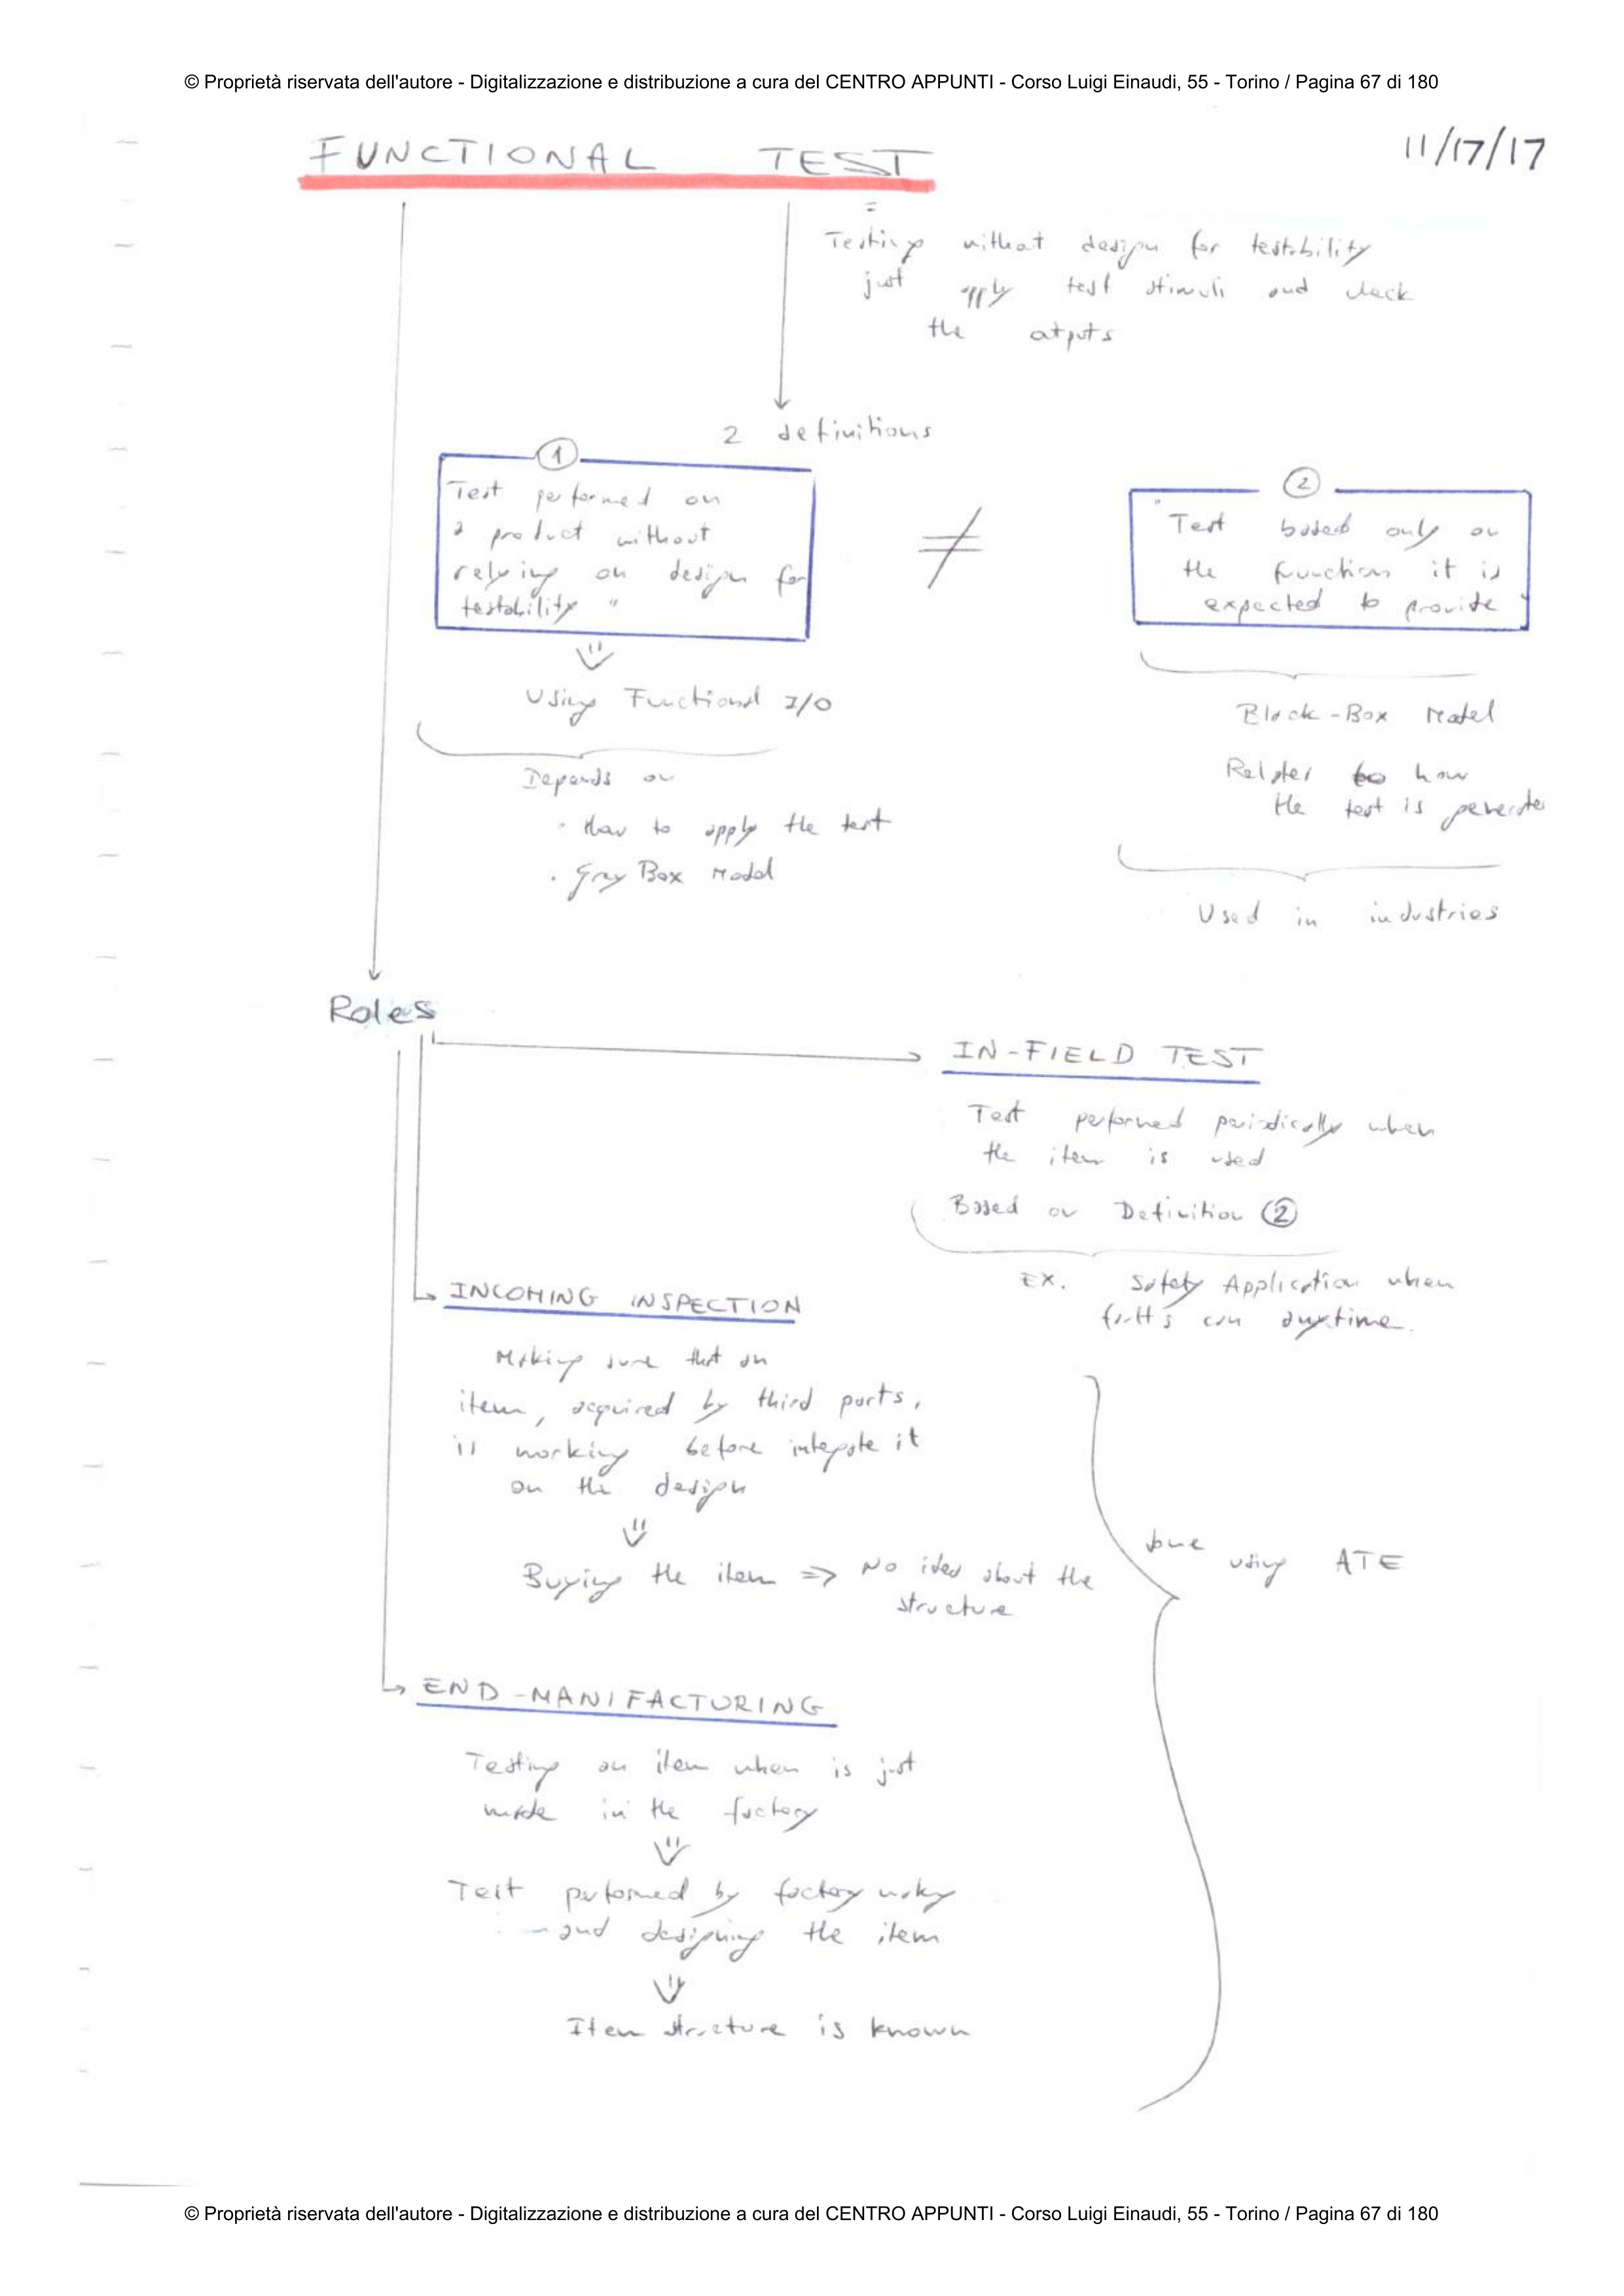 © Proprietà riservata dell'autore - Digitalizzazione e distribuzione a cura del CENTRO APPUNTI - Corso Luigi Einaudi, 55 - Torino / Pagina 67 di 180
FUNCTIONAL TEST
11/17/17
=
Testing without design for testability
just apply test stimuli and check
the
2 definitions
1
Test performed on
a product without
relying on design for
testability "
≠
2
" Test based only on
the function it is
expected to provide "
⇓
Using Functional I/O
Depends on
· How to apply the test
· Gray Box Model
Black-Box Model
to how
the test is
Used in industries
Roles
IN-FIELD TEST
Test performed periodically when
the item is used
Based on Definition 2
EX. Safety Application when
can anytime.
INCOMING INSPECTION
Making sure that an
item, acquired by third parts,
is working before integrate it
on the design
⇓
Buying the item ⇒ No idea about the
structure
done using ATE
END-MANIFACTURING
Testing an item when is just
made in the factory
⇓
Test performed by factory
and designing the item
⇓
Item structure is known
© Proprietà riservata dell'autore - Digitalizzazione e distribuzione a cura del CENTRO APPUNTI - Corso Luigi Einaudi, 55 - Torino / Pagina 67 di 180